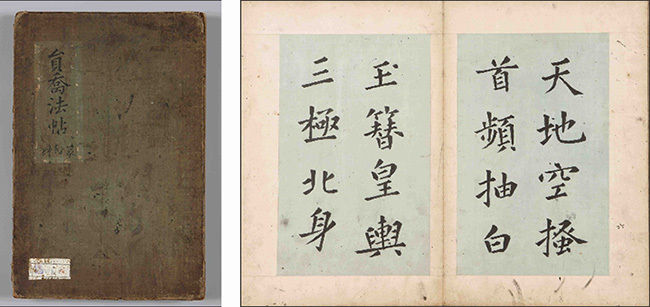 貟喬法帖
天地空搔
首頻抽白
玉簮皇輿
三極北身